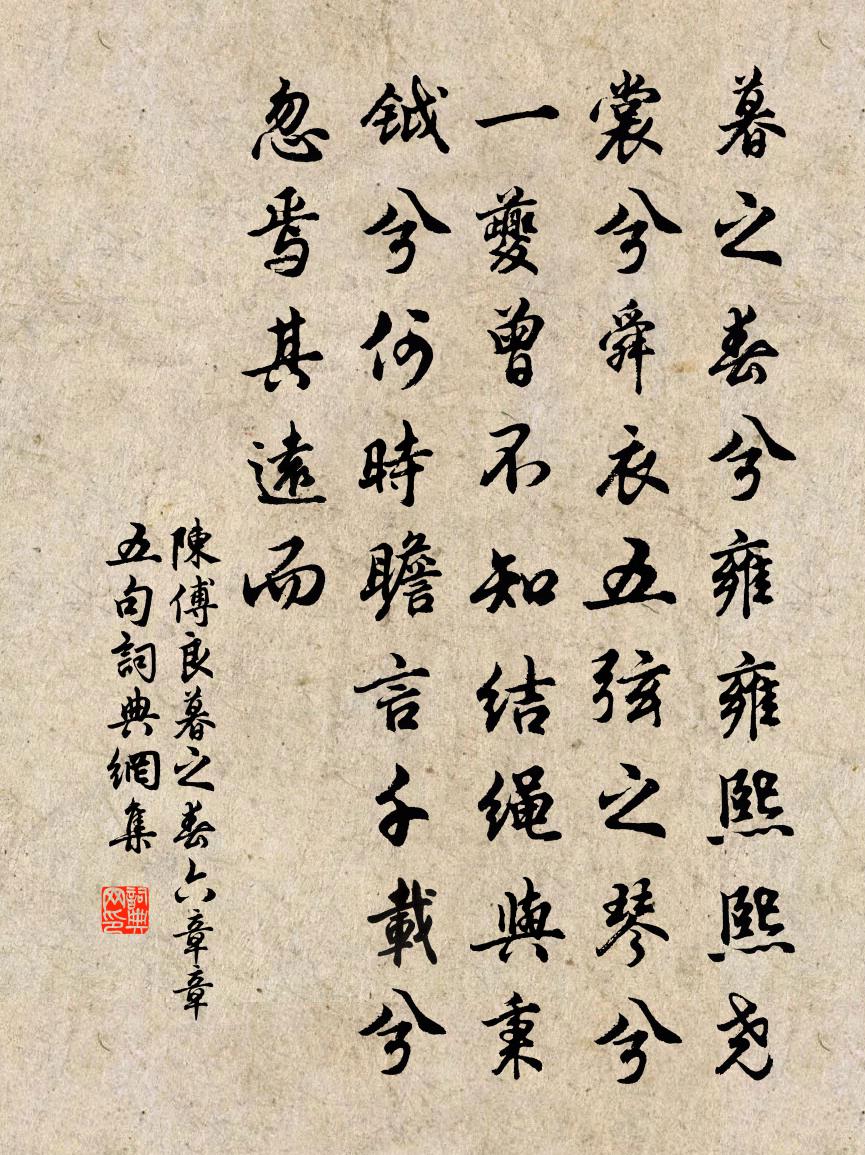 暮之春兮雍雍熙熙尧
裳兮舜衣五弦之琴兮
一夔曾不知结绳與秉
钺兮何時瞻言千載兮
忽焉其遠而
陳傅良暮之春六章章
五句詞典網集
詞典网印